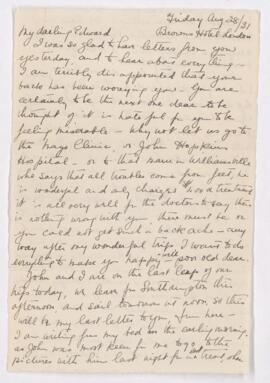 Friday Aug 28/31
Browns Hotel London
My darling Edward
I was so glad to have letters from you
yesterday, and to hear about everything -
I am terribly disappointed that your
back has been worrying you. You are
certainly to be the next one dear to be
thought of it is hateful for you to be
feeling miserable - Why not let us go to
the Mayo Clinic, or John Hopkins
Hospital - or to that man in Williamsville
who says that all troubles come from feet, he
is wonderful and only charges a treatment
it is all very well for the doctors to say there
is nothing wrong with you, there must be or
you could not get such back aches - any
way after my wonderful trip I want to do
everything to make you happy well poor old dear.
John and I are on the last leap of our
trip today, we leave for Southampton this
afternoon, and sail tomorrow at noon, so this
will be my last letter to you from here -
I am writing from my bed in the early morning,
as John was most keen for me to go to the
pictures with him last night for a treat when